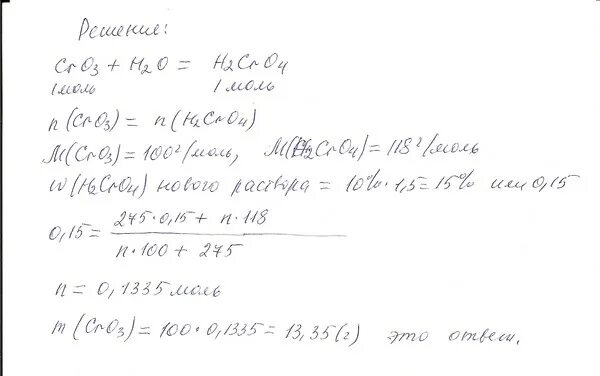 Решение:
CrO3 + H2O = H2CrO4
1 моль 1 моль
n (CrO3) = n (H2CrO4)
M(CrO3) = 100 г/моль, M(H2CrO4) = 118 г/моль
w (H2CrO4) нового раствора = 10% · 1,5 = 15% или 0,15
0,15 = (275 · 0,15 + n · 118) / (n · 100 + 275)
n = 0,1335 моль
m (CrO3) = 100 · 0,1335 = 13,35 (г) это ответ.